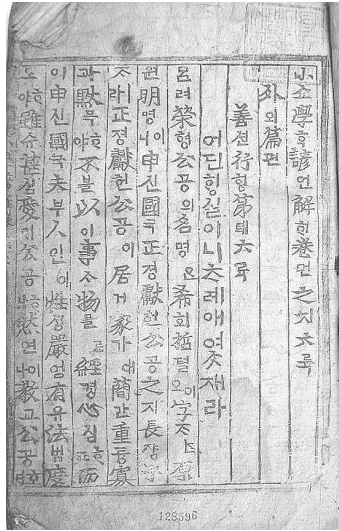 小쇼學ᄒᆞᆨ諺언解ᄒᆡ卷권之지六륙
外외篇편
善션行ᄒᆡᆼ第뎨六륙
어딘ᄒᆡᆼ실이니ᄎᆞ례애여ᄉᆞᆺ재라
呂려榮형公공의名명은希희哲텰이오字ᄌᆞᄂᆞᆫ原
원明명이니申신國국正졍獻헌公공之지長댱子
ᄌᆞ라正졍獻헌公공이居거家가애簡간重듕寡
과黙믁ᄒᆞ야不블以이事ᄉᆞ物믈로經경心심ᄒᆞ고而
이申신國국夫부人인이性셩嚴엄有유法법度
도ᄒᆞ야雖슈甚심愛ᄋᆡ公공ᄒᆞ나然연이나敎교公공호ᄃᆡ
128596